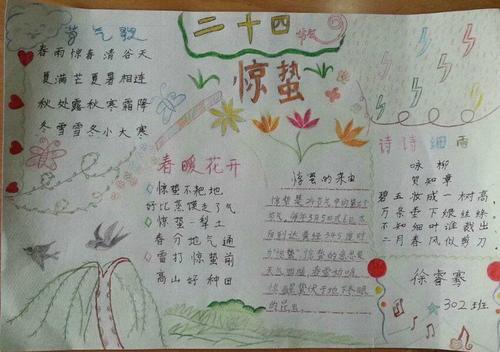 节气歌
春雨惊春清谷天
夏满芒夏暑相连
秋处露秋寒霜降
冬雪雪冬小大寒
二十四
节气
惊蛰
春暖花开
惊蛰不耙地
好比蒸馍走了气
惊蛰一犁土
春分地气通
雷打惊蛰前
高山好种田
惊蛰的来由
惊蛰是24节气中的第3个
节气,每年3月5日或6日太
阳到达黄经345度时
为"惊蛰"惊蛰的意思是
天气回暖,春雷始鸣,
惊醒蛰伏于地下冬眠
的昆虫。
诗诗细雨
咏柳
贺知章
碧玉妆成一树高
万条垂下绿丝绦
不知细叶谁裁出
二月春风似剪刀
徐睿骞
302班